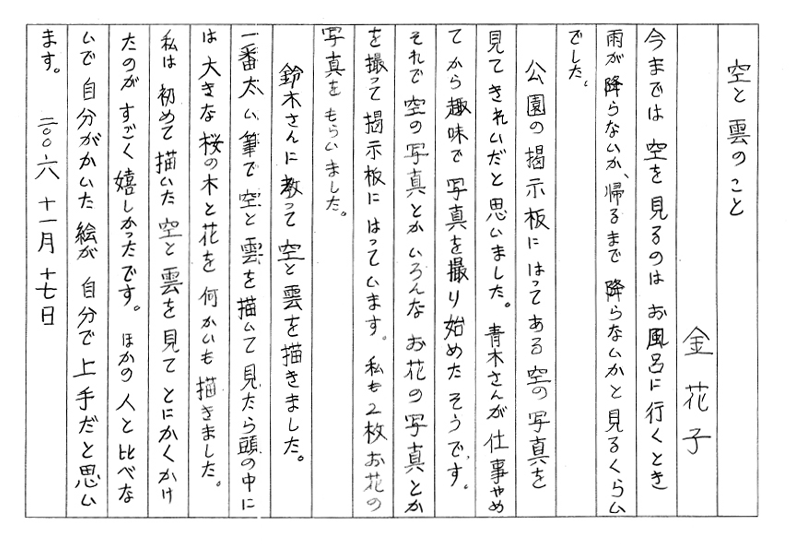 空と雲のこと
金花子
今までは 空を見るのは お風呂に行くとき
雨が降らないか、帰るまで 降らないかと見るくらい
でした。
公園の掲示板にはってある空の写真を
見てきれいだと思いました。青木さんが仕事やめ
てから趣味で写真を撮り始めたそうです。
それで空の写真とかいろんなお花の写真とか
を撮って掲示板にはっています。私も2枚お花の
写真をもらいました。
鈴木さんに教って空と雲を描きました。
一番太い筆で空と雲を描いて見たら頭の中に
は大きな桜の木と花を何かいも描きました。
私は初めて描いた空と雲を見てとにかくかけ
たのがすごく嬉しかったです。ほかの人と比べな
いで自分がかいた絵が自分で上手だと思い
ます。 二〇〇六 十一月 十七日